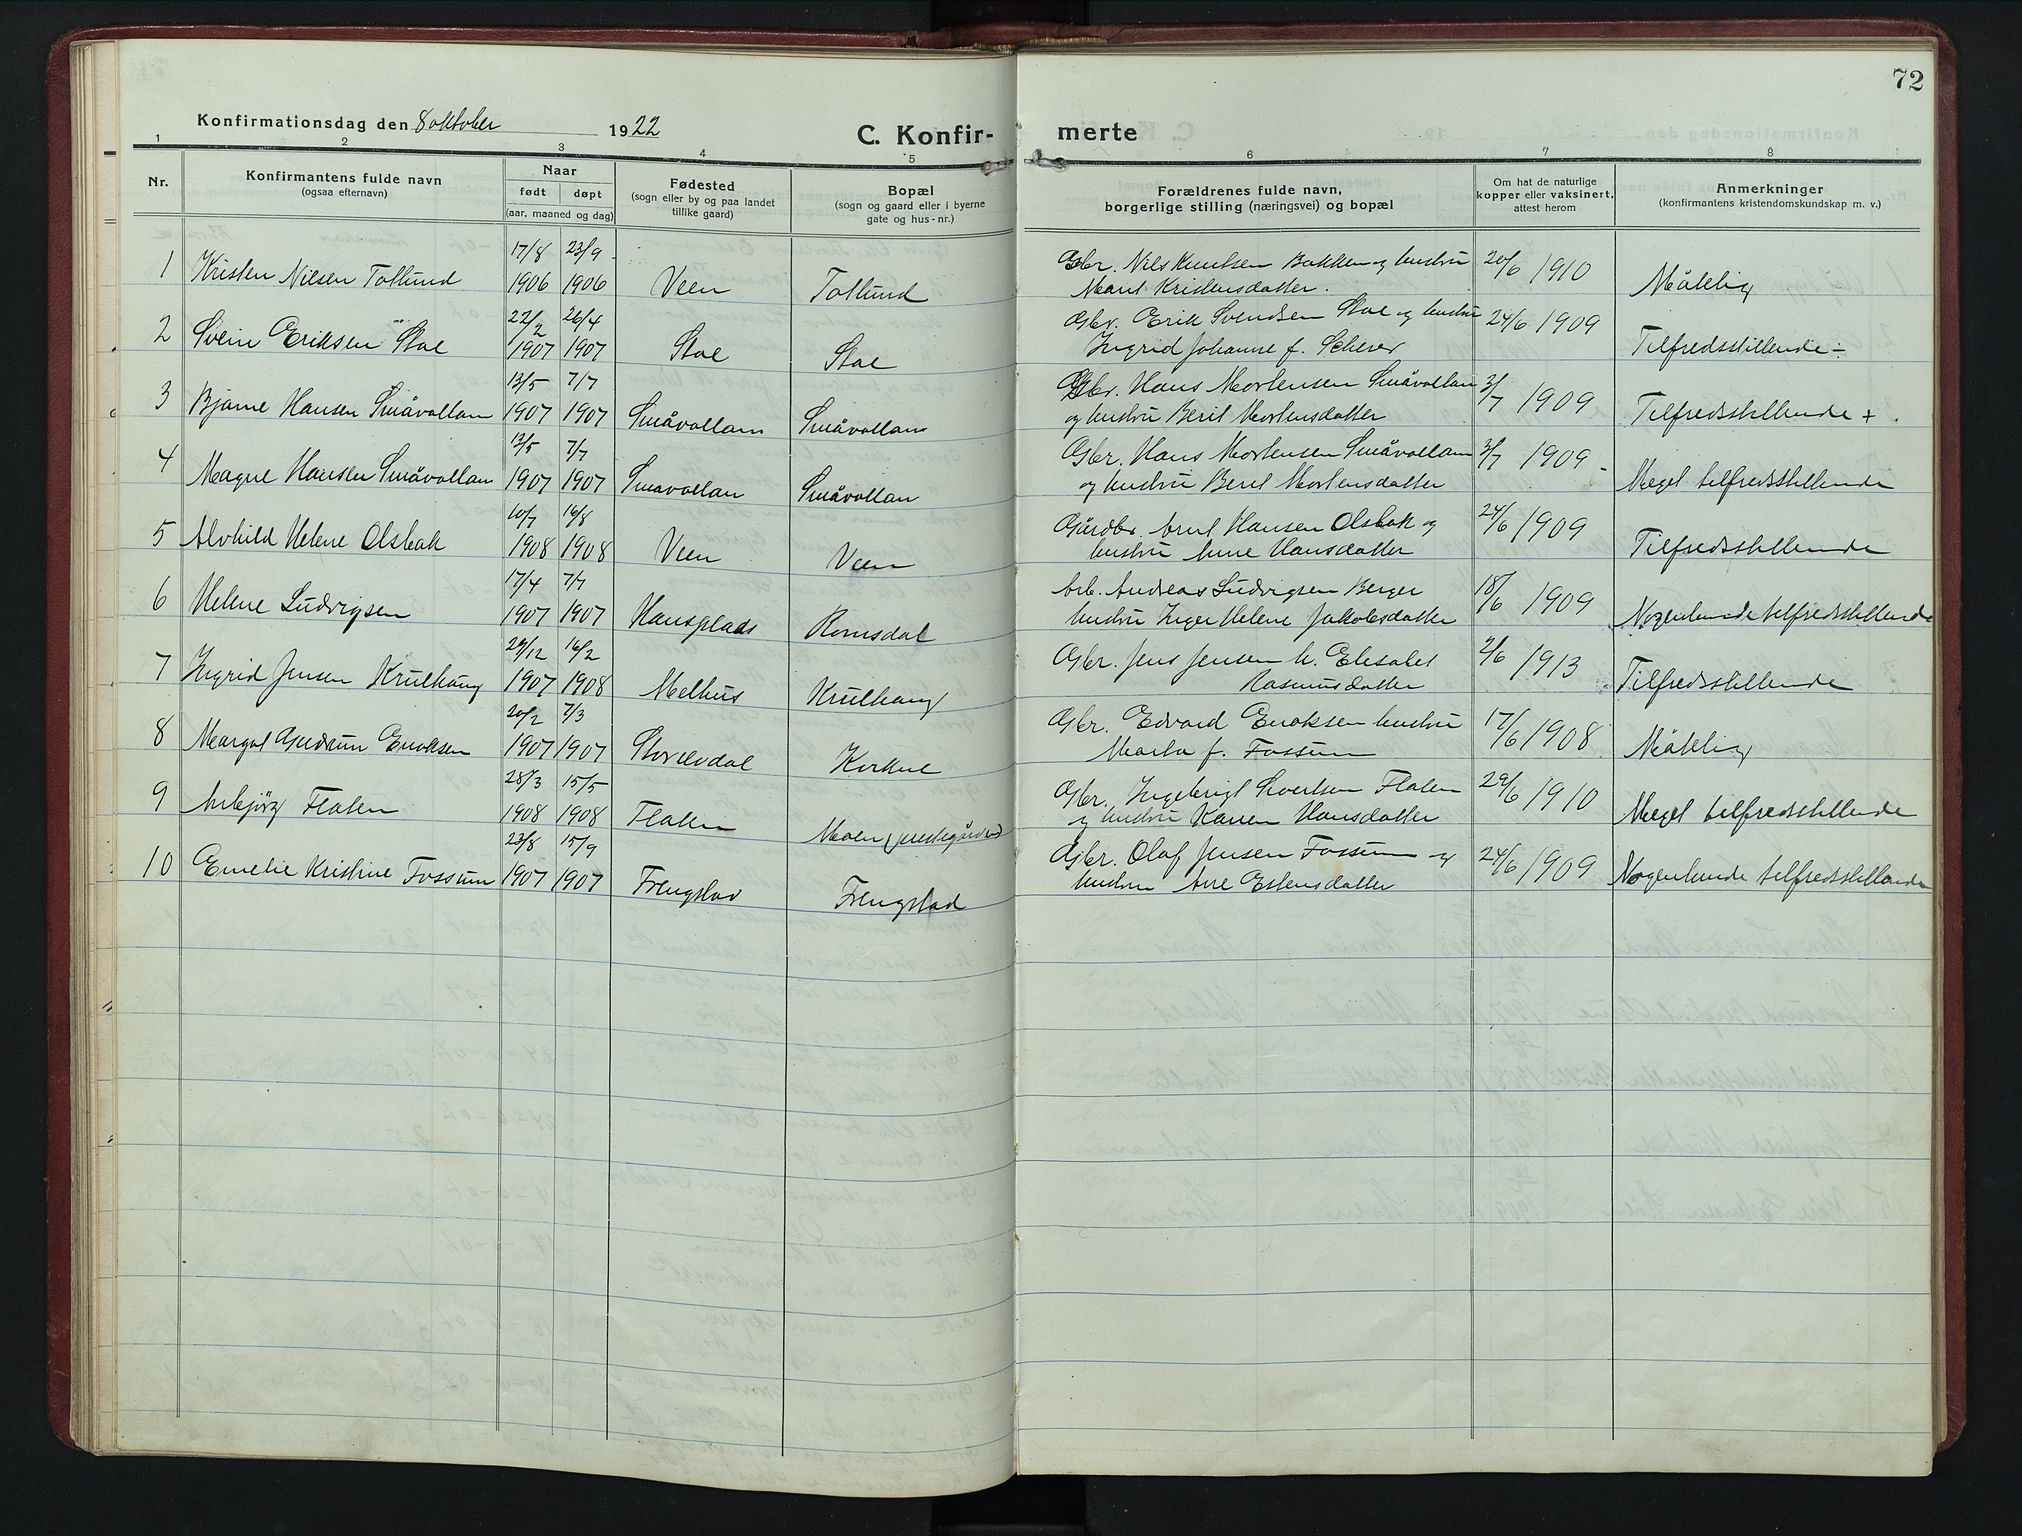 72
Konfirmationsdag den 8 oktober 1922
C. Konfir- merte
1 2 3 4 5 6 7 8
Nr.
Konfirmantens fulde navn
(ogsaa efternavn)
Naar
født døpt
(aar, maaned og dag)
Fødested
(sogn eller by og paa landet
tillike gaard)
Bopæl
(sogn og gaard eller i byerne
gate og hus-nr.)
Forældrenes fulde navn,
borgerlige stilling (næringsvei) og bopæl
Om hat de naturlige
kopper eller vaksinert,
attest herom
Anmerkninger
(konfirmantens kristendomskundskap m. v.)
17/8 23/9 Gbr. Nils Knutsen Bakken og hustru 20/6 1910
1 Kristen Nilsen Tollund 1906 1906 Veen Tollund Marit Kristensdatter. Måtelig
22/2 26/4 Gbr. Erik Svendsen Stoe og hustru 24/6 1909
2 Svein Eriksen Stoe 1907 1907 Stoe Stoe Ingrid Johanne f. Scherer Tilfredsstillende ÷
13/5 7/7 Gbr. Hans Mortensen Småvollan 3/7 1909
3 Bjarne Hansen Småvollan 1907 1907 Småvollan Småvollan og hustru Berit Mortensdatter Tilfredsstillende +
13/5 7/7 Gbr. Hans Mortensen Småvollan 3/7 1909
4 Magne Hansen Småvollan 1907 1907 Småvollan Småvollan og hustru Berit Mortensdatter Meget tilfredsstillende
10/7 16/8 Gårdbr. Arnt Hansen Olsbak og 24/6 1909
5 Alvhild Helene Olsbak 1908 1908 Veen Veen hustru Ane Hansdatter Tilfredsstillende
17/4 7/7 Arb. Andreas Ludvigsen Berger 18/6 1909
6 Helene Ludvigsen 1907 1907 Hansplads Romsdal hustru Inger Helene Jakobsdatter Nogenlunde tilfredsstillende
29/12 16/2 Gbr. Jens Jensen h. Elisabet 2/6 1913
7 Ingrid Jensen Krulhaug 1907 1908 Melhus Krulhaug Rasmusdatter Tilfredsstillende
20/2 7/3 Gbr. Edvard Enoksen hustru 17/6 1908
8 Margot Gudrun Enoksen 1907 1907 Storelvdal Korkne Marta f. Fossum Måtelig
28/3 15/5 Gbr. Ingebrigt Sivertsen Flaten 29/6 1910
9 Anbjørg Flaten 1908 1908 Flaten Moen (prestegården) og hustru Karen Hansdatter Meget tilfredsstillende
23/8 15/9 Gbr. Olaf Jensen Fossum og 24/6 1909
10 Emelie Kristine Fossum 1907 1907 Frengstad Frengstad hustru Ane Estensdatter Nogenlunde tilfredsstillende